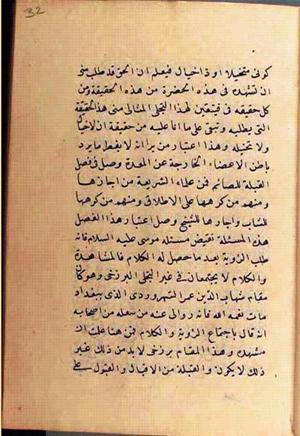 32
كونى متخيلا او ذا خيال فيعلم ان الحق قد طلب منى
ان نشهده فى هذه الحضرة من هذه الحقيقة ومن
كل حقيقة فى فيتعين لهذا التجلى المثالى منى هذه الحقيقة
التى يطلبه وتبقى على ما انا عليه من حقيقة ان لا خيال
ولا تخيله وهذا اعتبار من يرا انه لا يفطر ما يرد
باطن الاعضاء الخارجة عن المعدة وصل فى فصل
القبلة للصائم فمن علماء الشريعة من اجازها
ومنهم من كرهها على الاطلاق ومنهم من كرهها
للشاب واجازها للشيخ وصل اعتبار هذا الفصل
هذه المسئلة نقيض مسئلة موسى عليه السلام فانه
طلب الرؤية بعد ما حصل له الكلام فالمشاهدة
والكلام لا يجتمعان فى غير التجلى البرزخى وهو كان
مقام شهاب الدين عمر السهروردى الذى ببغداد
مات رحمه الله فانه روى لى عنه من اصحابه
انه قال باجتماع الرؤية والكلام فمن هنا علمت ان
مشهده وهذا المقام برزخى لا بد من ذلك غير
ذلك لا يكون والقبلة من الاقبال والقبول على